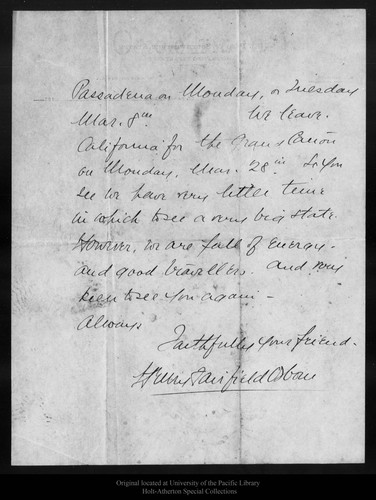 Passadena on Monday, or Tuesday
Mar. 8th We leave
California for the Grand Cañon
on Monday, Mar. 28th. So you
see we have very little time
in which to see a very big state.
However, we are full of energy -
and good travellers. And very
keen to see you again -
Always
Faithfully your friend.
Henry Fairfield Osborn
Original located at University of the Pacific Library
Holt-Atherton Special Collections